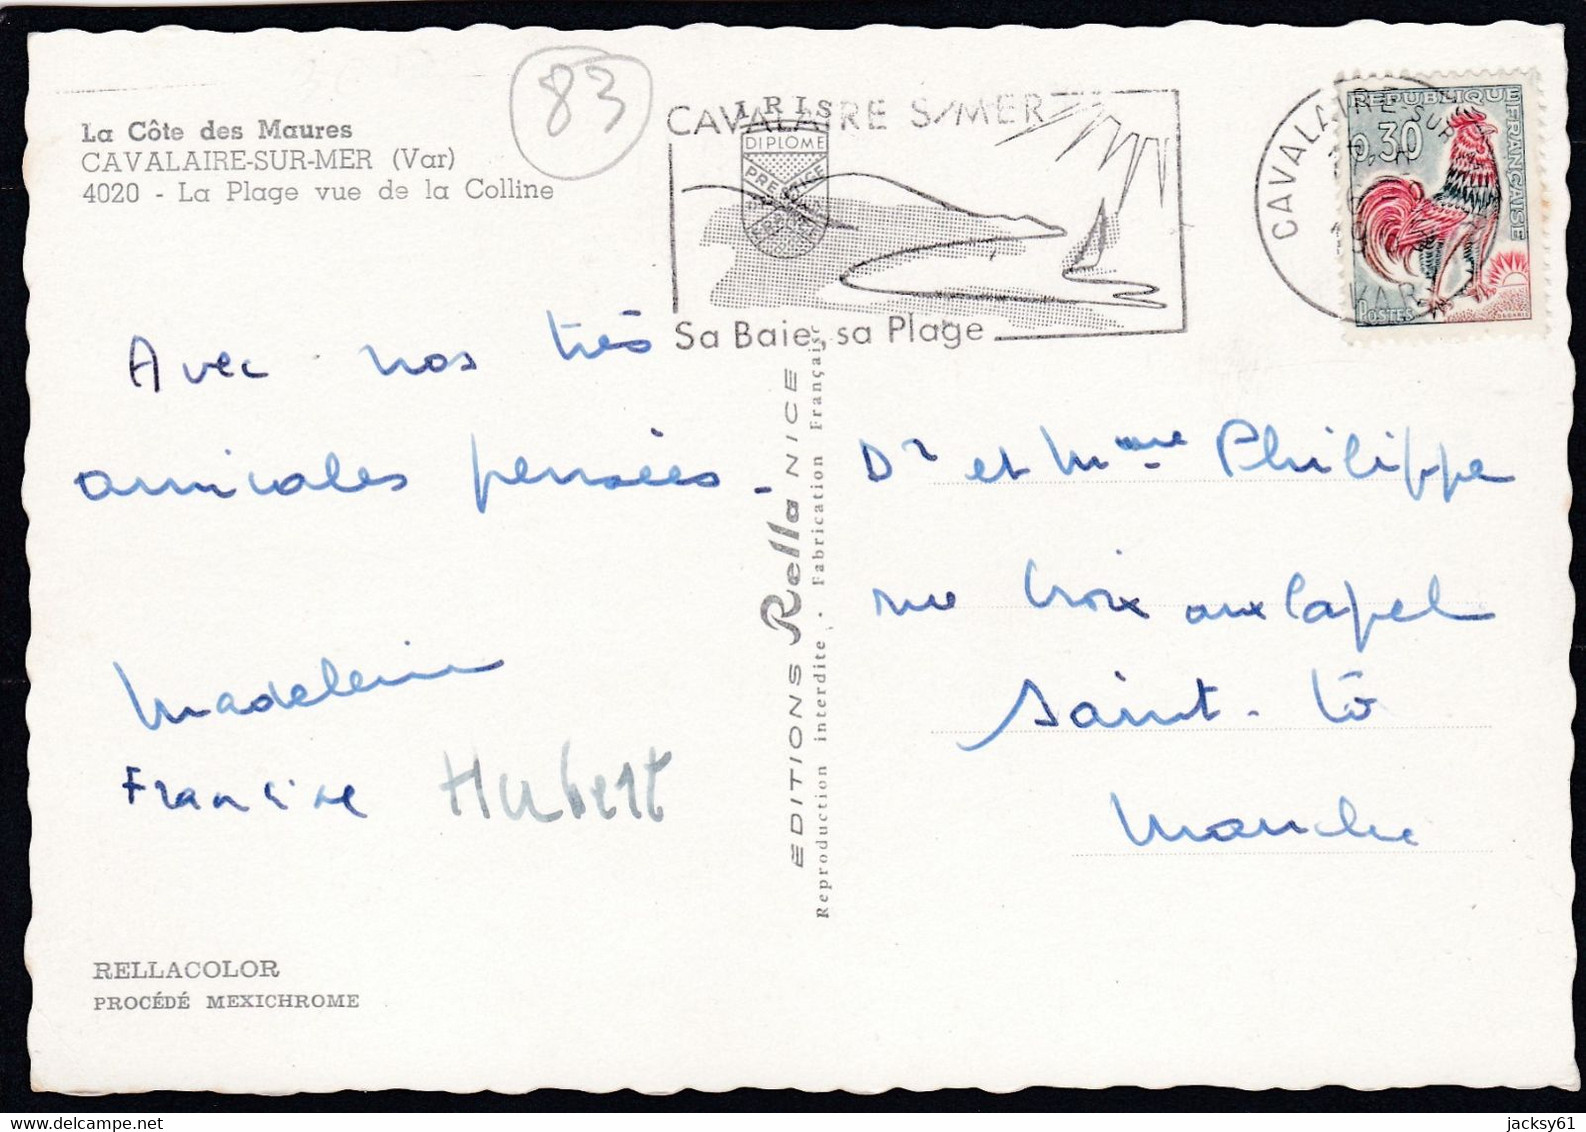 83
La Côte des Maures
CAVALAIRE-SUR-MER (Var)
4020 - La Plage vue de la Colline
CAVALAIRE S/MER
IRIS
DIPLOME
PRESTIGE
Sa Baie, sa Plage
CAVALAIRE-SUR
VAR
REPUBLIQUE FRANÇAISE
0,30
POSTES
Avec nos très
amicales pensées.
Madeleine
Francine Hubert
EDITIONS Rella NICE
Reproduction interdite . Fabrication Française
Dr et Mme Philippe
rue Croix au Capel
Saint-Lô
Manche
RELLACOLOR
PROCÉDÉ MEXICHROME
jacksy61